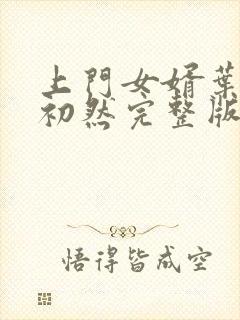 上門女婿葉
初然完整版
悟得皆成空